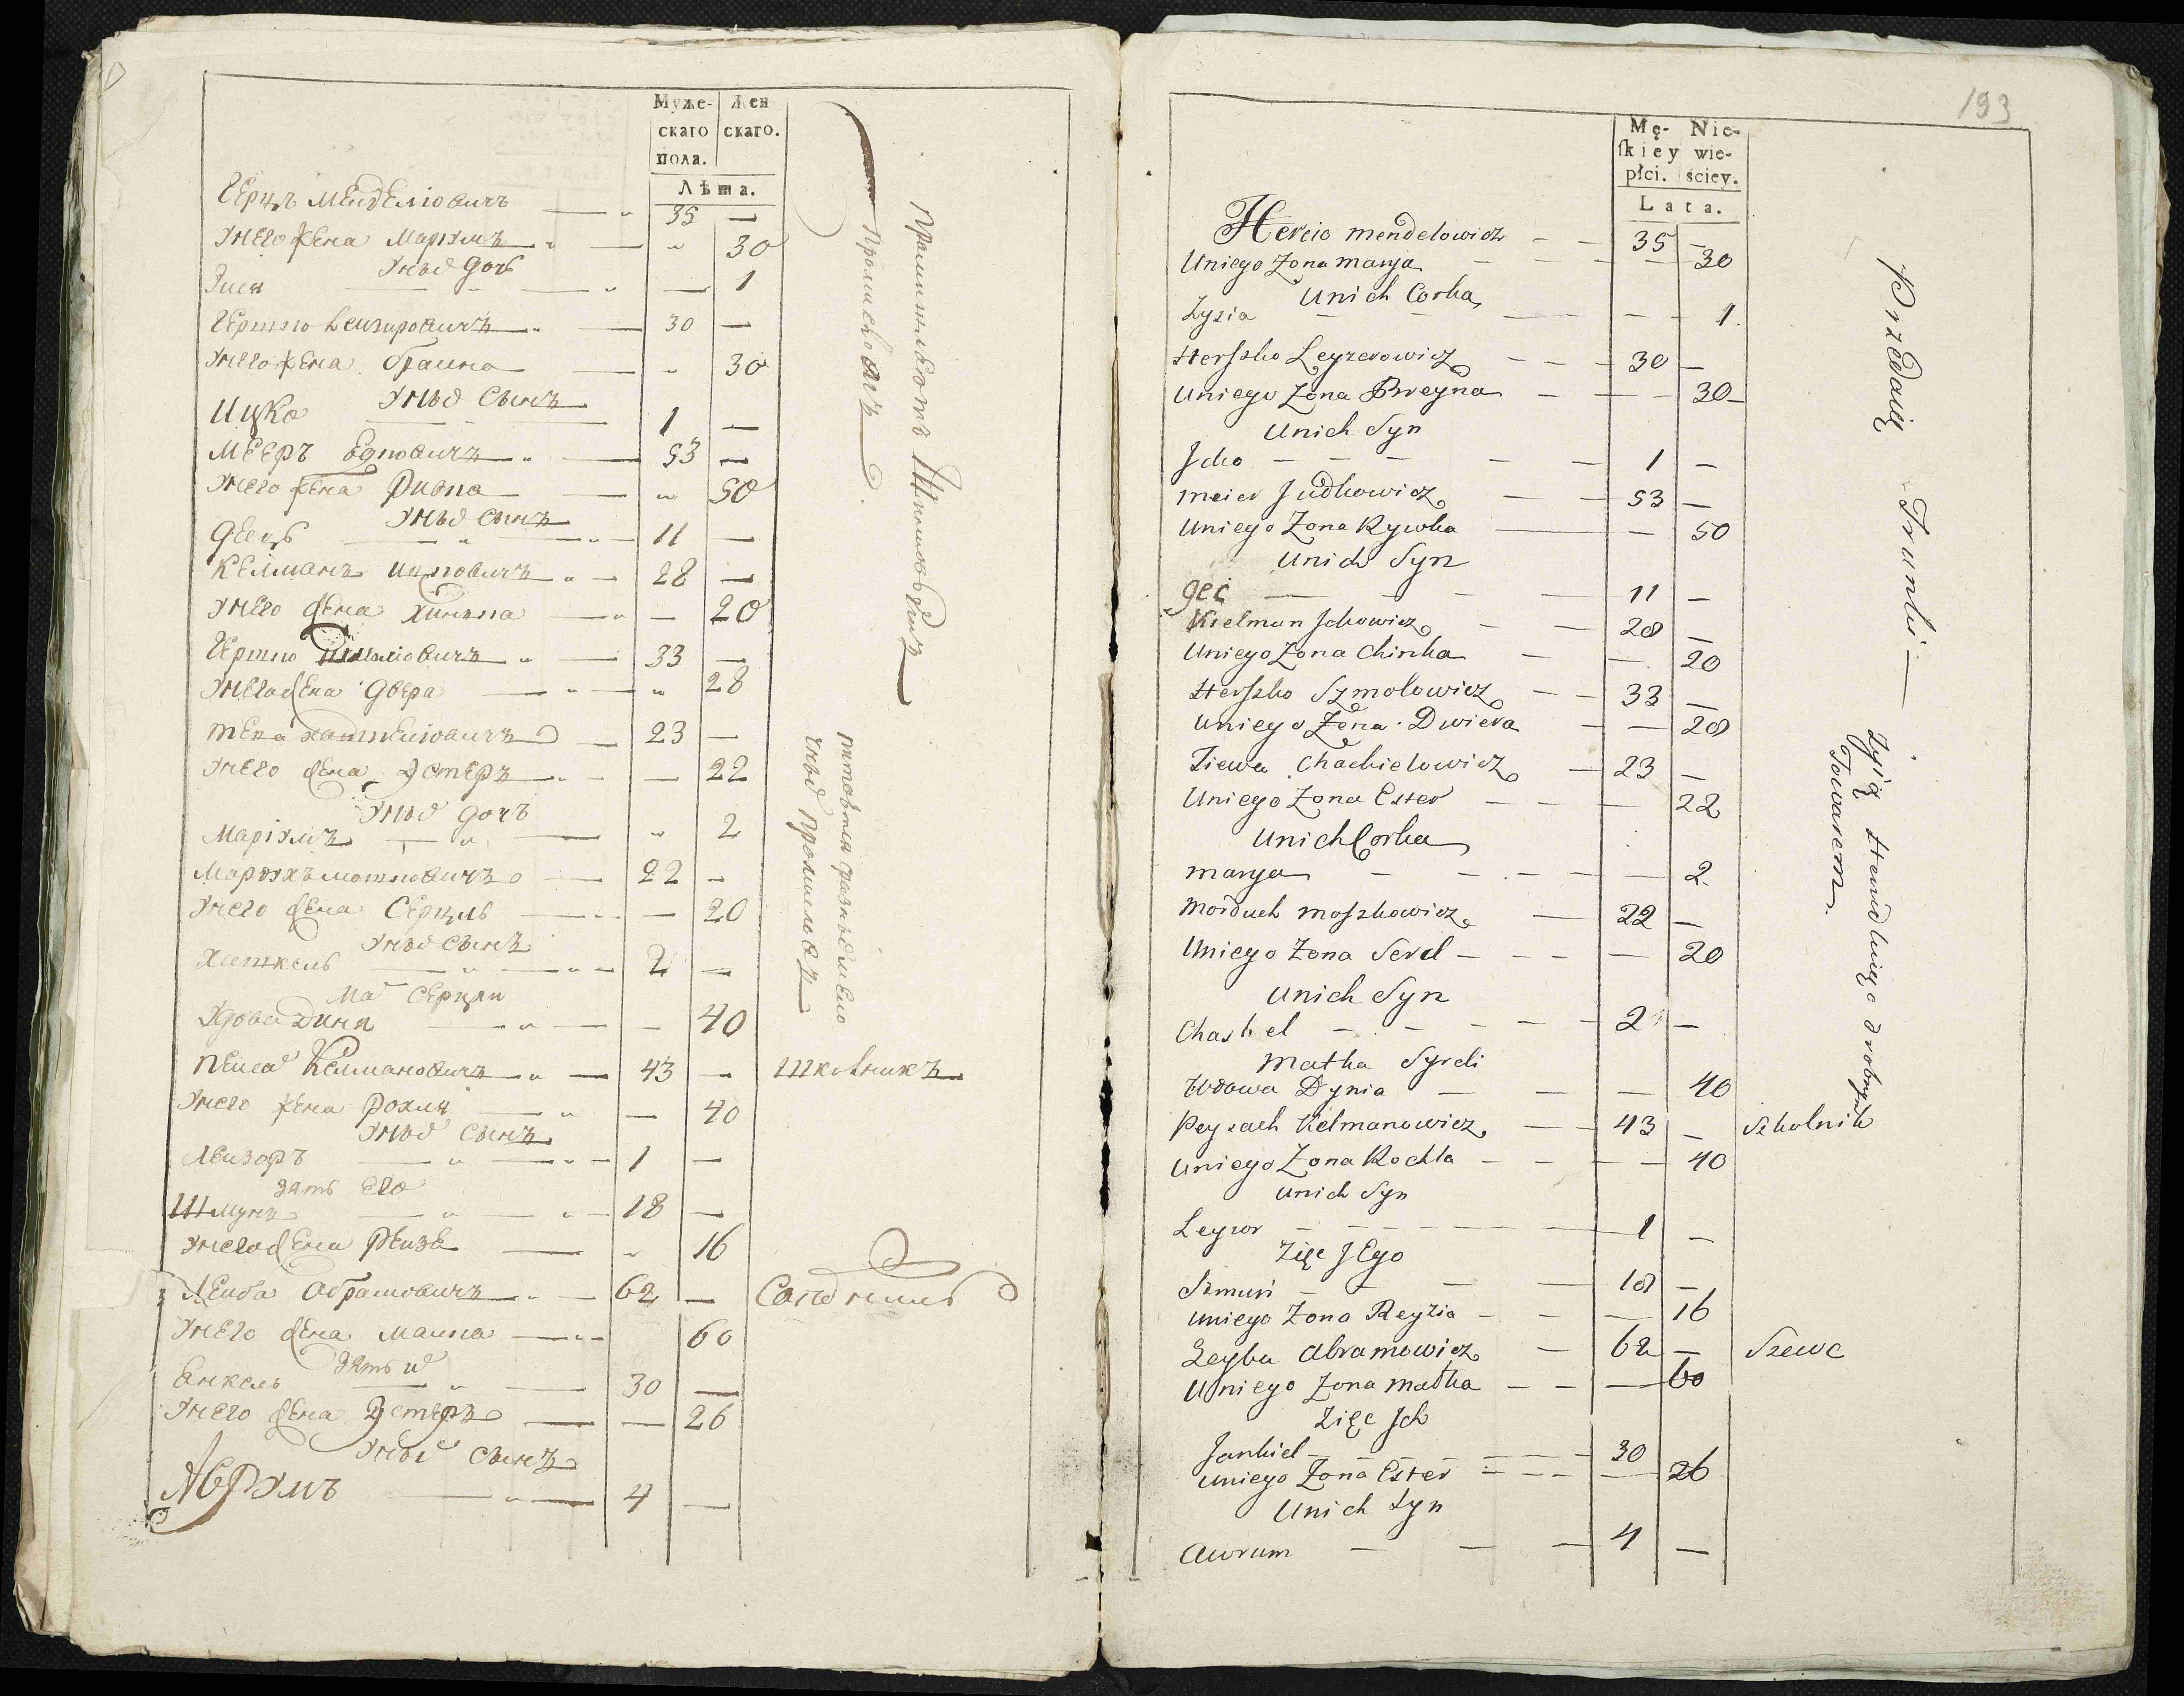 Муже- Жен
скаго скаго.
пола.
Лѣта.
Герцъ Менделiовичъ 35 —
Унего жена Мариамъ " 30
Унихъ дочь
Зися — 1
Гершко Леизировичъ 30 —
Унего жена Браина " 30
Унихъ Сынъ
Ицко 1 —
Мееръ Юдковичъ 53 —
Унего жена Ривка " 50
Унихъ Сынъ
Геецъ 11 —
Келманъ Ицковичъ 28 —
Унего жена Хинька — 20
Гершко Шмулiовичъ 33 —
Унего жена Двера " 28
23 —
Унего жена Эстеръ — 22
Унихъ дочъ
Марiямъ " 2
Мордухъ Мошковичъ 22 —
Унего жена Серцль — 20
Унихъ сынъ
Хаткель 2 —
Ма Серцли
Удова Диня — 40
Пейса Келмановичъ 43 — Школникъ
Унего жена Рохля — 40
Унихъ Сынъ
Леизоръ 1 —
зять Его
Шмунь 18 —
Унего жена Реизя " 16
Леиба Обрамовичъ 62 — Сапожникъ
Унего жена Малка 60
Зять их
Енкель 30 —
Унего жена Эстеръ — 26
Унихъ сынъ
Аврумъ 4 —
193
Mę- Nie-
ſkiey wie-
płci. ściey.
Lata.
Hercio Mendelowicz — — 35 —
Uniego Zona Marya — — — — 30
Unich Corka
Zysia — — — — — 1.
Herszko Leyzerowicz — — — 30 —
Uniego Zona Breyna — — — 30 —
Unich Syn
Icko — — — — — 1 —
Meier Judkowicz — — 53 —
Uniego Zona Rywka — — 50
Unich Syn
Gec — — — — 11 —
Kielman Ickowicz — — 28 —
Uniego Zona Chinka — — 20
Herszko Szmolowicz — — 33 —
Uniego Zona Dwiera — — 28
Tiewa Chackielowicz — 23 —
Uniego Zona Ester — — — 22
Unich Corka
Marya — — — — — 2
Morduch Moszkowicz — 22 —
Uniego Zona Sercl — — — — 20
Unich Syn
Chaskel — — — — — 2 —
Matka Syrcli
Wdowa Dynia — — — 40
Peysach Kelmanowicz — — 43 — Szkolnik
Uniego Zona Rochla — — — — 40
Unich Syn
Leyzor — — — — — — 1 —
Zięć Jego
Szmuń — — — — 18 —
Uniego Zona Reyzia — — — 16
Leyba Abramowicz — 62 — Szewc
Uniego Zona Malka — — — 60
Zięć Ich
Jankiel — — — — — 30
Uniego Zona Ester — — — — 26
Unich Syn
Awrum — — — 4 —
Przedaią Trunki —
Zyią Handluiąc drobnym
Towarem.